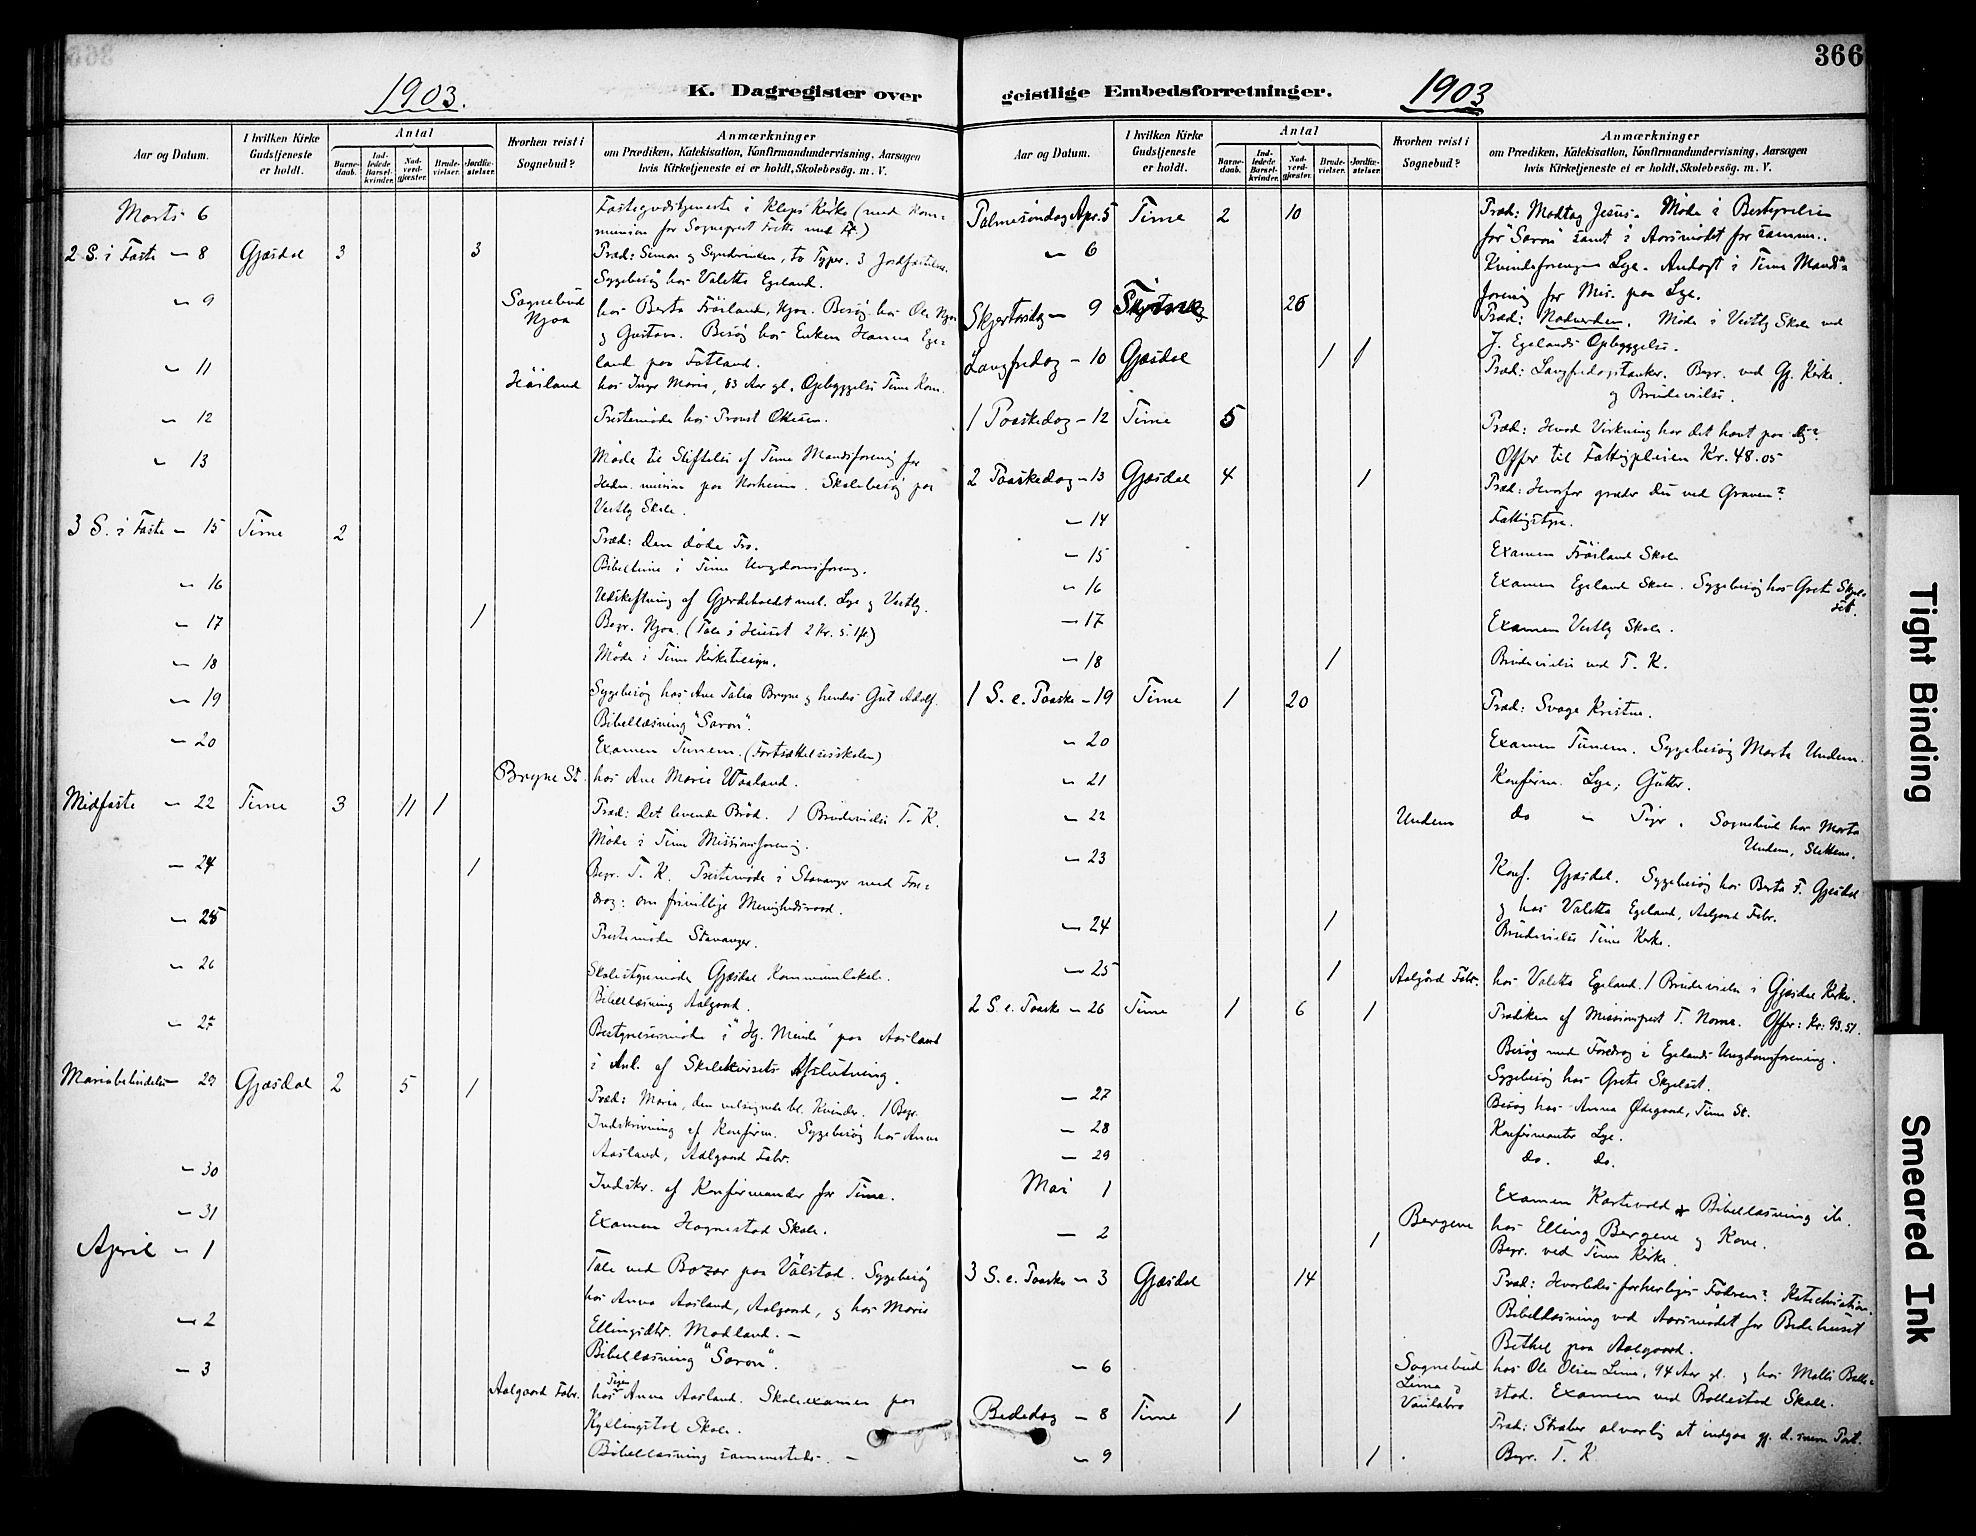 366
1903.
K. Dagregister over
Aar og Datum.
I hvilken Kirke Gudstjeneste er holdt.
Antal
Barne-daab.
Ind-ledede Barsel-kvinder.
Nad-verd-gjæster.
Brude-vielser.
Jordfæ-stelser.
Hvorhen reist i Sognebud?
Anmærkninger
om Prædiken, Katekisation, Konfirmandundervisning, Aarsagen
hvis Kirketjeneste ei er holdt, Skolebesøg. m. V.
Marts 6 Fastegudstjeneste i Klepp Kirke (med Kom=
munion for Sogneprest
2 S. i Faste - 8 Gjæsdal 3 3 Præd: Simon og Synderinden, to Typer. 3 Jordfæstelser.
Sygebesøg hos Valetta Egeland.
- 9 Sognebud Njaa hos Berta Fröiland, Njaa. Besøg hos Ole Njaa
og Gustava. Besøg hos Enken Hanna Ege=
land paa Fotland.
- 11 Höiland hos Inger Marie, 83 Aar gl. Opbyggelse Time Kom.
- 12 Prestemøde hos Provst Oftedal.
- 13 Møde til Stiftelse af Time Mandsforening for
Hedn. mission paa Norheim. Skolebesøg paa
Vestly Skole.
3 S. i Faste - 15 Time 2 Præd: Den døde Tro.
Bibeltime i Time Ungdomsforening.
- 16 Udskiftning af Gjerdeholdet mel. Lye og Vestly.
- 17 1 Begr. Njaa. (Tale i Huset 2 Kr. 5. 1ff)
- 18 Møde i Time Kirketilsyn.
- 19 Sygebesøg hos Ane Talia Bryne og hendes Gut Adolf.
Bibellæsning "Saron".
- 20 Examen Tunem. (Fortsættelsesskolen)
Bryne St. hos Ane Marie Waaland.
Midfaste - 22 Time 3 11 1 Præd: Det levende Brød. 1 Brudevielse T. K.
Møde i Time Missionsforening.
- 24 1 Begr. T. K. Prestemøde i Stavanger med Fore=
drag: om frivillige Menighedsraad.
- 25 Prestemøde Stavanger.
- 26 Skolestyremøde Gjæsdal Kommunelokale.
Bibellæsning Aalgaard.
- 27 Bestyrelsesmøde i "Hj. Minde" paa Aasland
i Anl. af Skolekursets Afslutning.
Mariæbebudelse - 29 Gjæsdal 2 5 1 Præd: Maria, den velsignede bl. Kvinder. 1 Begr.
Indskrivning af Konfirm. Sygebesøg hos Anna
Aasland, Aalgaard Fabr.
- 30 Indskr. af Konfirmander for Time.
- 31 Examen Hognestad Skole.
April - 1 Tale ved Bazar paa Vålstad. Sygebesøg
hos Anna Aasland, Aalgaard, og hos Marie
Ellingsdtr. Madland. -
- 2 Bibellæsning "Saron".
- 3 Aalgaard Fabr. hos Pigen Anna Aasland. Skoleexamen paa
Kyllingstad Skole.
Bibellæsning sammesteds. -
geistlige Embedsforretninger.
1903
Aar og Datum.
I hvilken Kirke Gudstjeneste er holdt.
Antal
Barne-daab.
Ind-ledede Barsel-kvinder.
Nad-verd-gjæster.
Brude-vielser.
Jordfæ-stelser.
Hvorhen reist i Sognebud?
Anmærkninger
om Prædiken, Katekisation, Konfirmandundervisning, Aarsagen
hvis Kirketjeneste ei er holdt, Skolebesøg. m. V.
Palmesøndag Apr. 5 Time 2 10 Præd: Modtag Jesus. Møde i Bestyrelsen
for "Saron" samt i Aarsmødet for samm..
- 6 Kvindeforengen Lye. Andagt i Time Mands=
forenig for Mis. paa Lye.
Skjertorsdag - 9 Time 26 Præd: Nadverden. Møde i Vestly Skole ved
J. Egelands Opbyggelse.
Langfredag - 10 Gjæsdal 1 1 Præd: Langfredagstanker. Begr. ved Gj. Kirke.
og Brudevielse.
1 Paaskedag - 12 Time 5 Præd: Hvad Virkning har det havt paa dig?
Offer til Fattigpleien Kr. 48.05
2 Paaskedag - 13 Gjæsdal 4 1 Præd: Hvorfor græder du ved Graven?
- 14 Fattigstyre.
- 15 Examen Fröiland Skole
- 16 Examen Egeland Skole. Sygebesøg hos Grete Skjels
set.
- 17 Examen Vestly Skole.
- 18 1 Brudevielse ved T. K.
1 S. e. Paaske - 19 Time 1 20 Præd: Svage Kristne.
- 20 Examen Tunem. Sygebesøg Marta Undem.
- 21 Konfirm. Lye; Gutter.
- 22 Undem do - Piger. Sognebud hos Marta
Undem, Slettene.
- 23 Konf. Gjæsdal. Sygebesøg hos Berta F. Gjesdal
og hos Valetta Egeland, Aalgaard Fabr.
- 24 1 Brudevielse Time Kirke.
- 25 1 Aalgård Fabr. hos Valetta Egeland. 1 Brudevielse i Gjæsdal Kirke.
2 S. e. Paaske - 26 Time 1 6 1 Prædiken af Missionsprest T. Offer: Kr: 93.51.
Besøg med Foredrag i Egelands Ungdomsforening.
Sygebesøg hos Grete Skjelset.
- 27 Besøg hos Anna Ødegaard, Time St.
- 28 Konfirmanter Lye.
- 29 do. do.
Mai 1 Examen Kartevold & Bibellæsning ib.
- 2 1 Bergene hos Elling Bergene og Kone.
Begr. ved Time Kirke.
3 S. e. Paaske - 3 Gjæsdal 14 Præd: Hvorledes forherliges Faderen? Katechisation.
Bibellæsning ved Aarsmødet for Bedehuset
Bethel paa Aalgaard.
- 6 Sognebud Lima og hos Ole Olsen Lima, 94 Aar gl. og hos Malli Bolle=
stad. Examen ved Bollestad Skole.
Bededag - 8 Time 1 Præd: Stræber alvorlig at indgaa gj. d. snevre Port.
- 9 1 Begr. T. K
Tight Binding
Smeared Ink